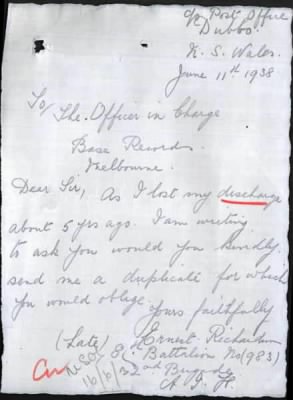 c/o Post Office
Dubbo.
N. S. Wales.
June 11th 1938
To/ The. Officer in Charge
Base Records.
Melbourne.
Dear Sir, As I lost my discharge
about 5 yrs ago. I am writing
to ask you would you kindly
send me a duplicate for which
you would oblige
yours faithfully
(Late) Ernest Richardson
Battalion No (983)
2nd Brigade
A. I. F.